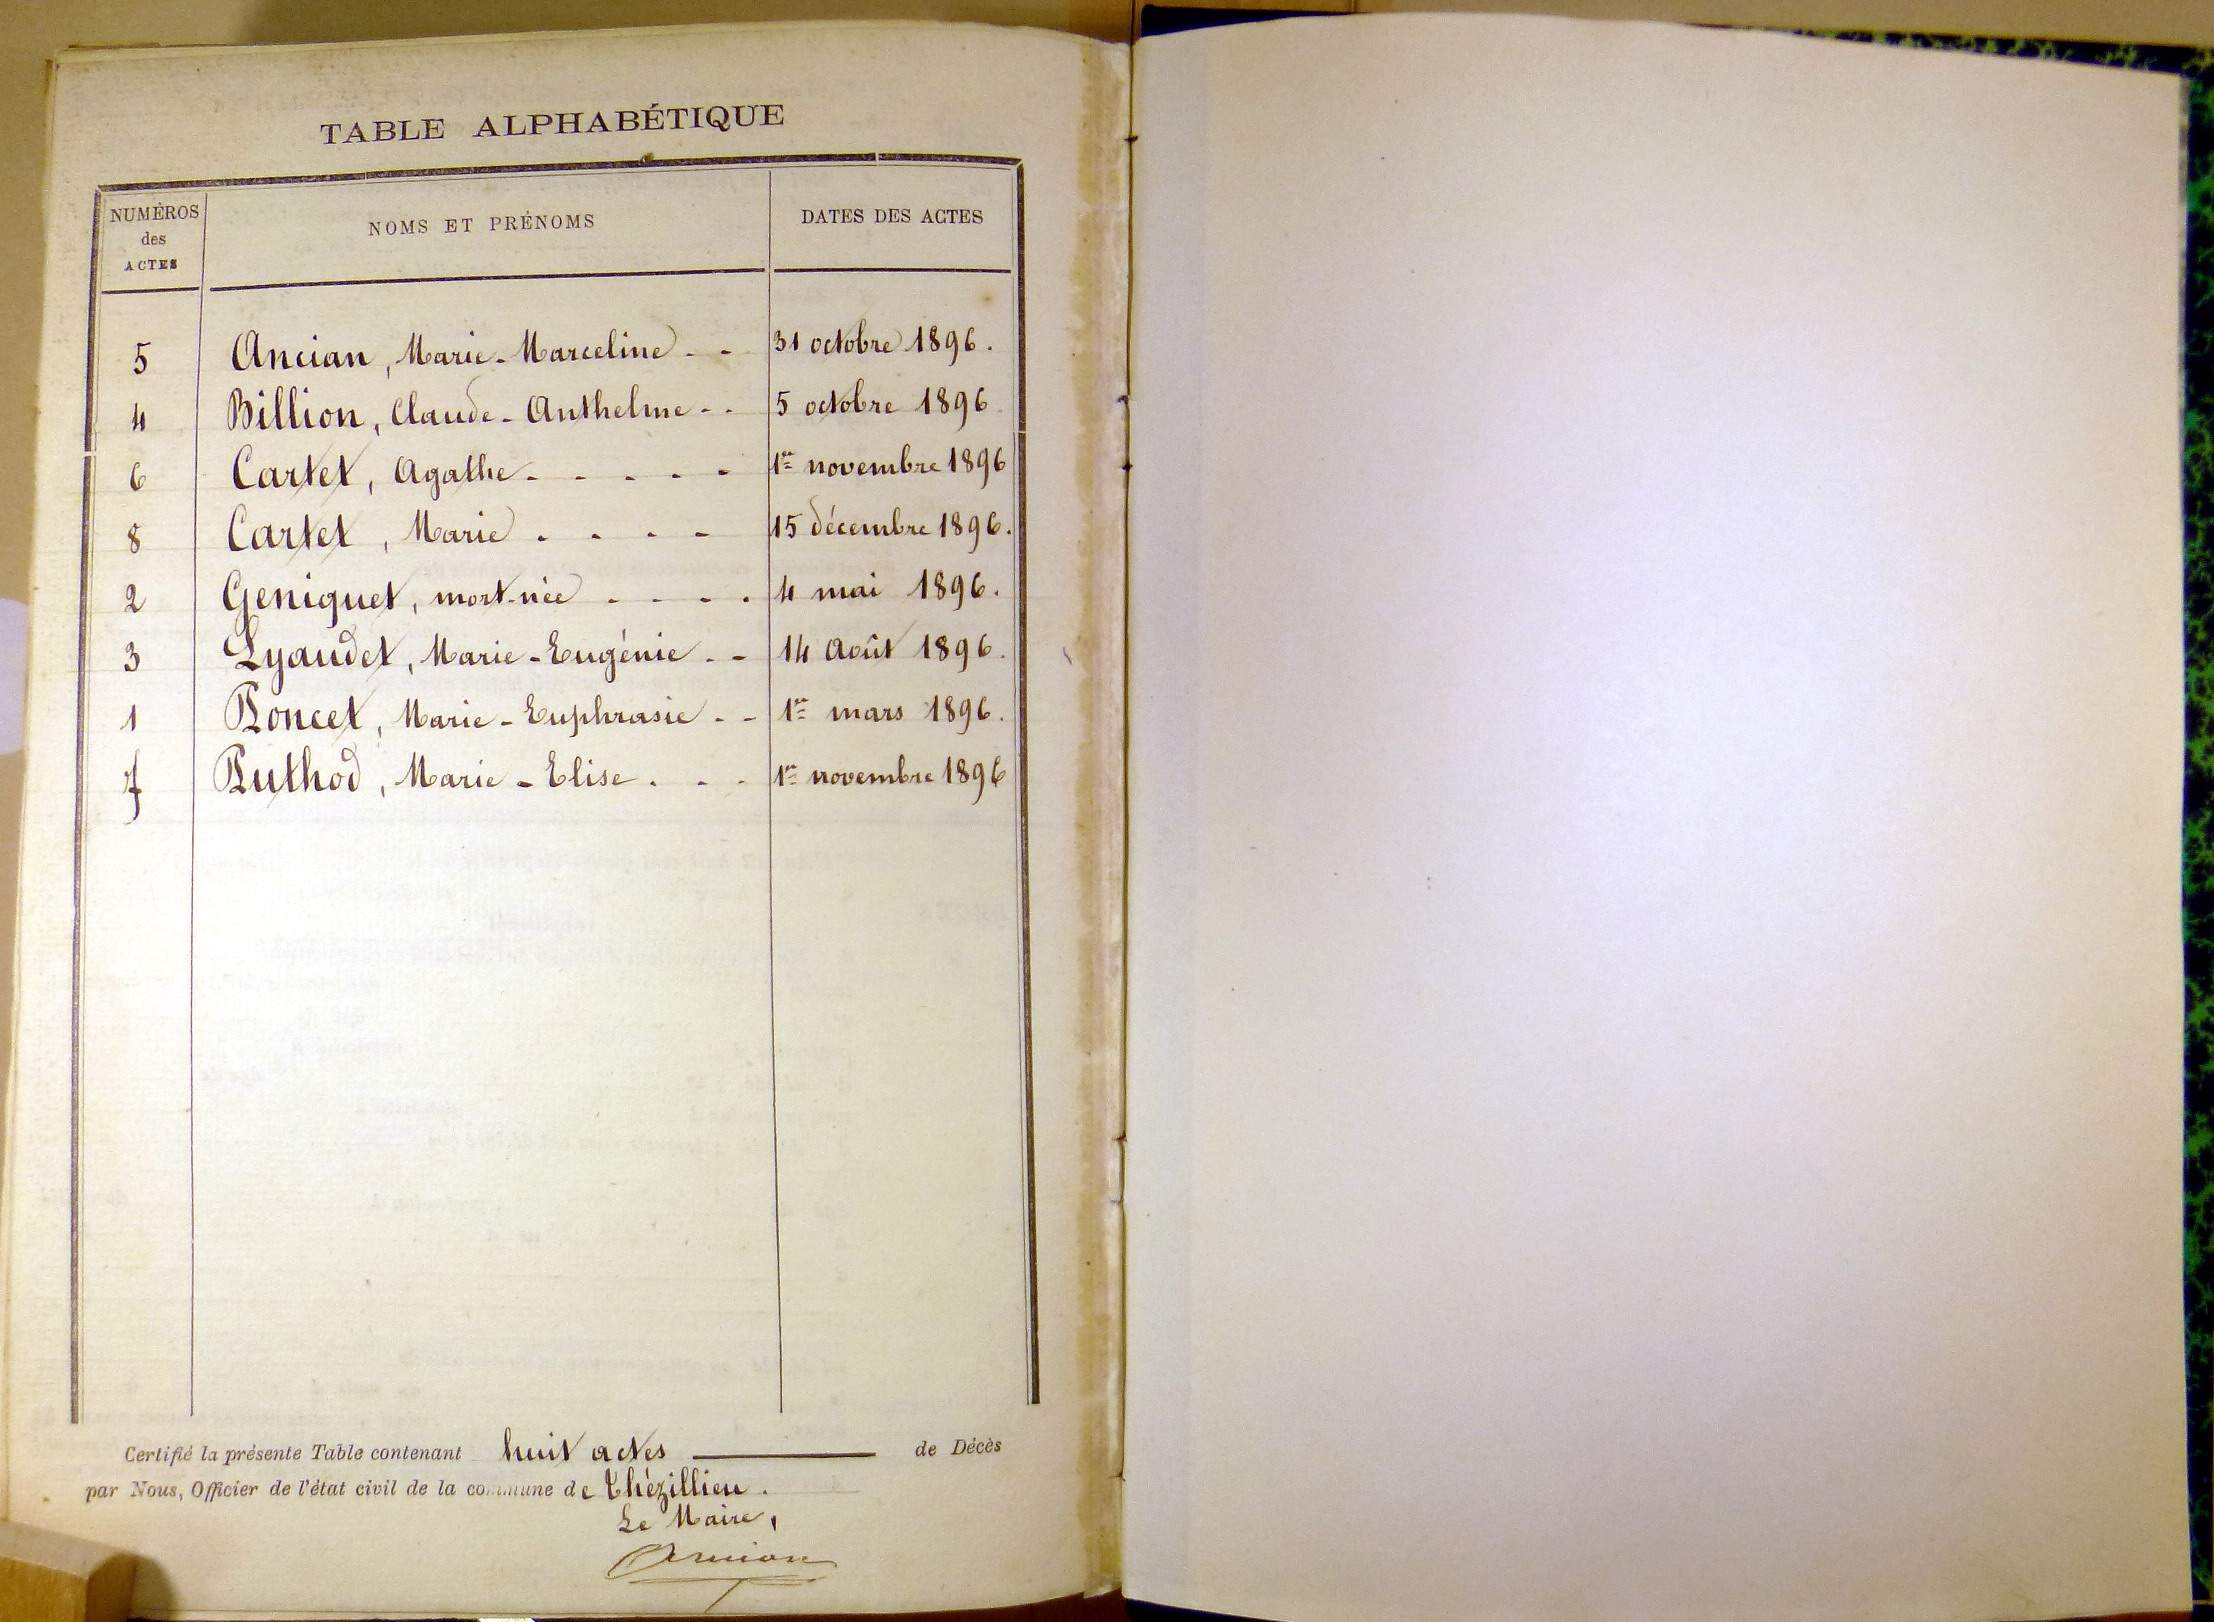 TABLE ALPHABÉTIQUE
NUMÉROS des ACTES NOMS ET PRÉNOMS DATES DES ACTES
5 Ancian, Marie-Marceline - - 31 octobre 1896.
4 Billion, Claude-Anthelme - - 5 octobre 1896
6 Cartet, Agathe - - - - - 1er novembre 1896
8 Cartet, Marie - - - - 15 décembre 1896.
2 Geniquet, mort-née - - - - 4 mai 1896.
3 Lyaudet, Marie-Eugénie - - 14 Août 1896.
1 Poncet, Marie-Euphrasie - - 1er mars 1896.
7 Puthod, Marie-Elise - - - 1er novembre 1896
Certifié la présente Table contenant huit actes de Décès
par Nous, Officier de l'état civil de la commune de Thézillieu.
Le Maire,